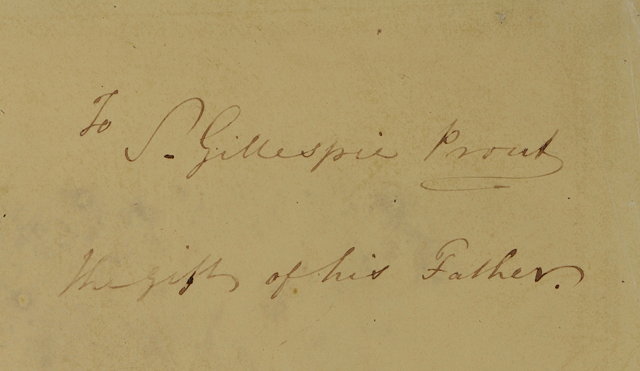 To
S. Gillespie Prout
the gift of his Father.